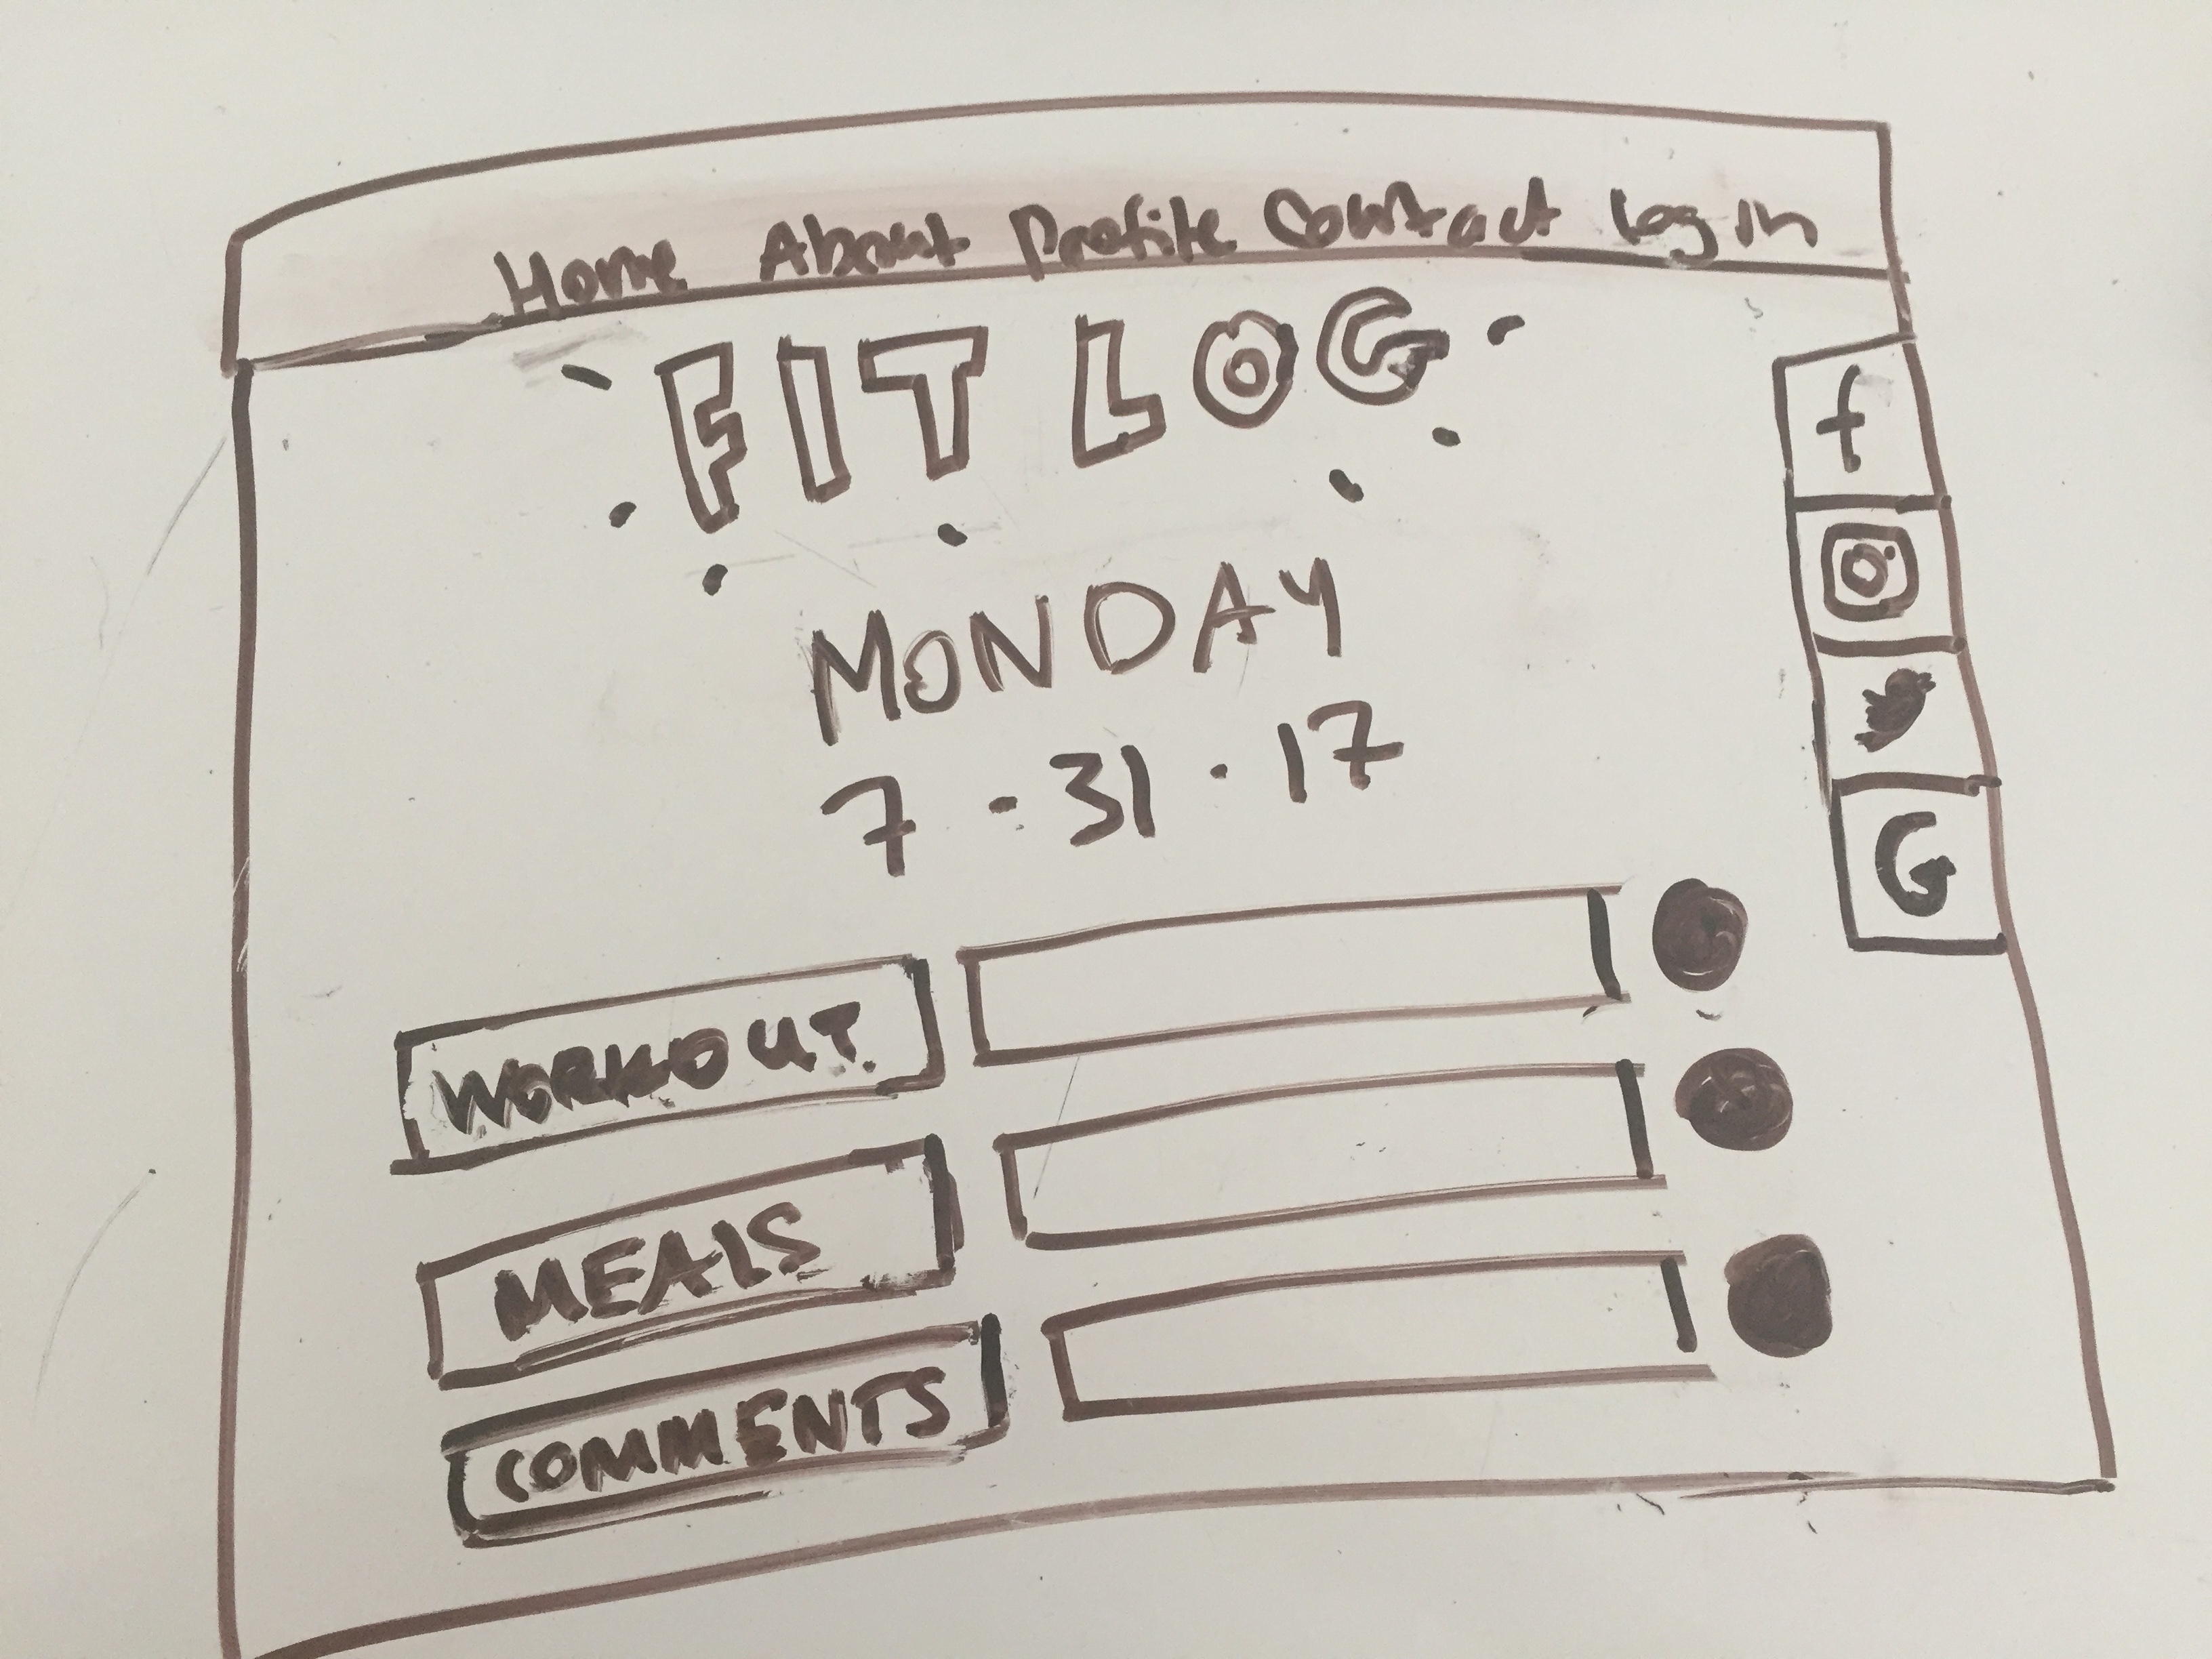 Home About Profile Contact Log in
FIT LOG
MONDAY
7 - 31 · 17
f
G
WORKOUT
MEALS
COMMENTS